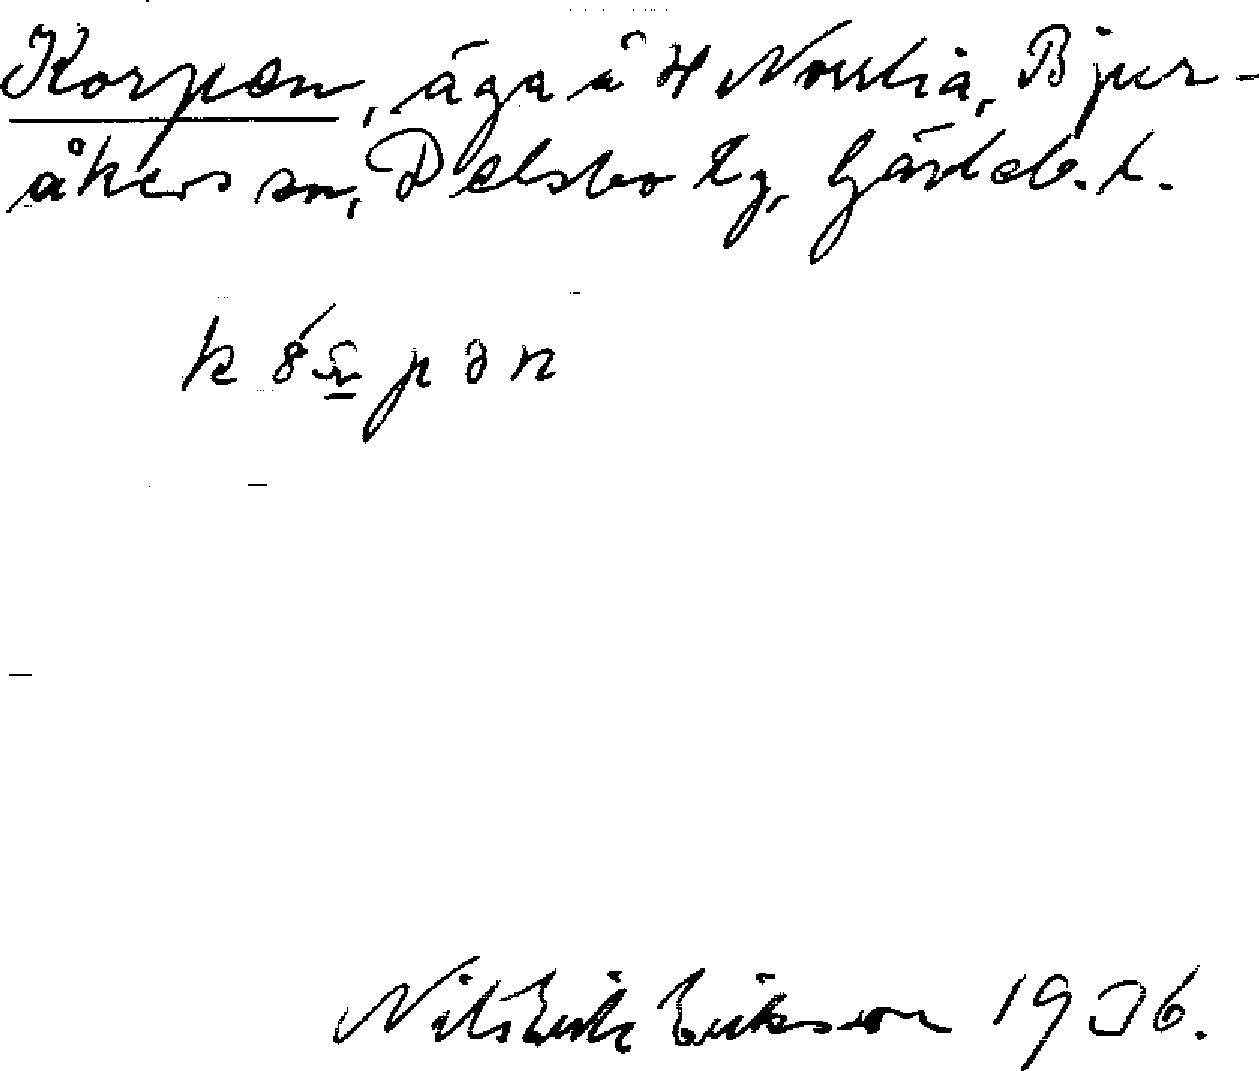 Korpen, äga å 4 Norrlia, Bjur-
åkers sn, Delsbo tg, Gävleb. l.
Nils Erik Eriksson 1936.